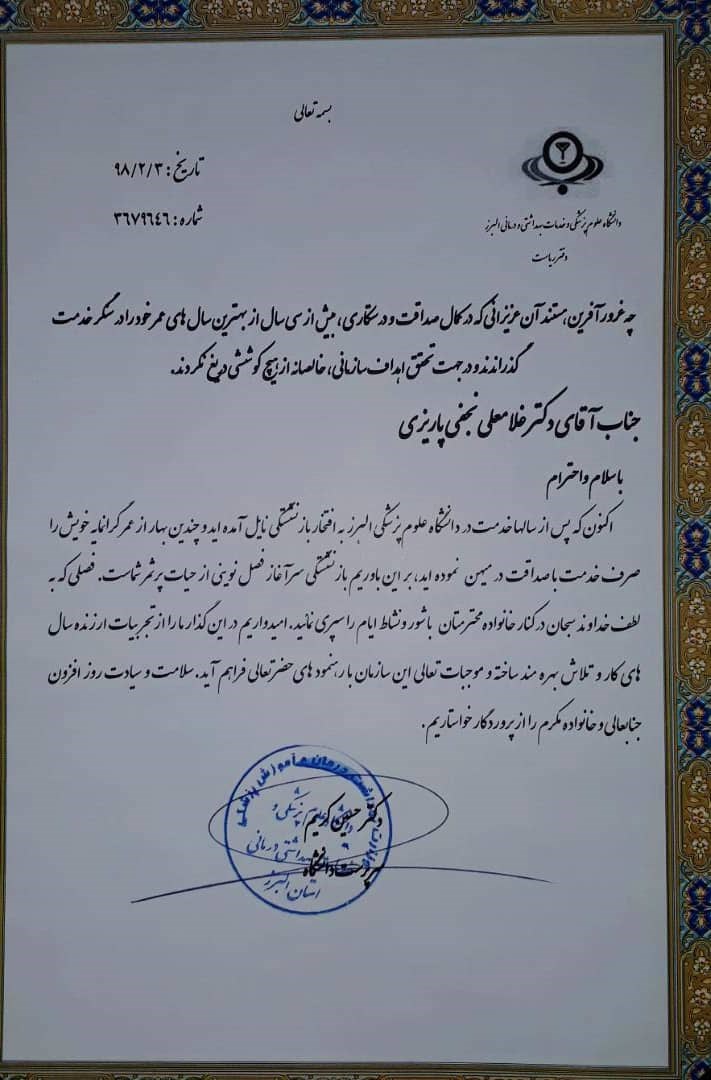 بسمه تعالی
تاریخ: ۹۸/۲/۳
شماره: ۳۶۷۹۶۴۶
دانشگاه علوم پزشکی و خدمات بهداشتی و درمانی البرز
دفتر ریاست
چه غرور آفرین هستند آن عزیزانی که در کمال صداقت و درستکاری، بیش از سی سال از بهترین سال های عمر خود را در سنگر خدمت
گذراندند و در جهت تحقق اهداف سازمانی، خالصانه از هیچ کوششی دریغ نکردند.
جناب آقای دکتر غلامعلی نجفی پاریزی
با سلام و احترام
اکنون که پس از سالها خدمت در دانشگاه علوم پزشکی البرز به افتخار بازنشستگی نایل آمده اید و چندین بهار از عمر گرانمایه خویش را
صرف خدمت با صداقت در میهن نموده اید، بر این باوریم بازنشستگی سرآغاز فصل نوینی از حیات پرثمر شماست. فصلی که به
لطف خداوند سبحان در کنار خانواده محترمتان با شور و نشاط ایام را سپری نمائید. امیدواریم در این گذار ما را از تجربیات ارزنده سال
های کار و تلاش بهره مند ساخته و موجبات تعالی این سازمان با رهنمود های حضرتعالی فراهم آید. سلامت و سیادت روز افزون
جنابعالی و خانواده مکرم را از پروردگار خواستاریم.
دکتر حسین کریم
سرپرست دانشگاه
وزارت بهداشت درمان و آموزش پزشکی
دانشگاه علوم پزشکی و
خدمات بهداشتی درمانی
استان البرز